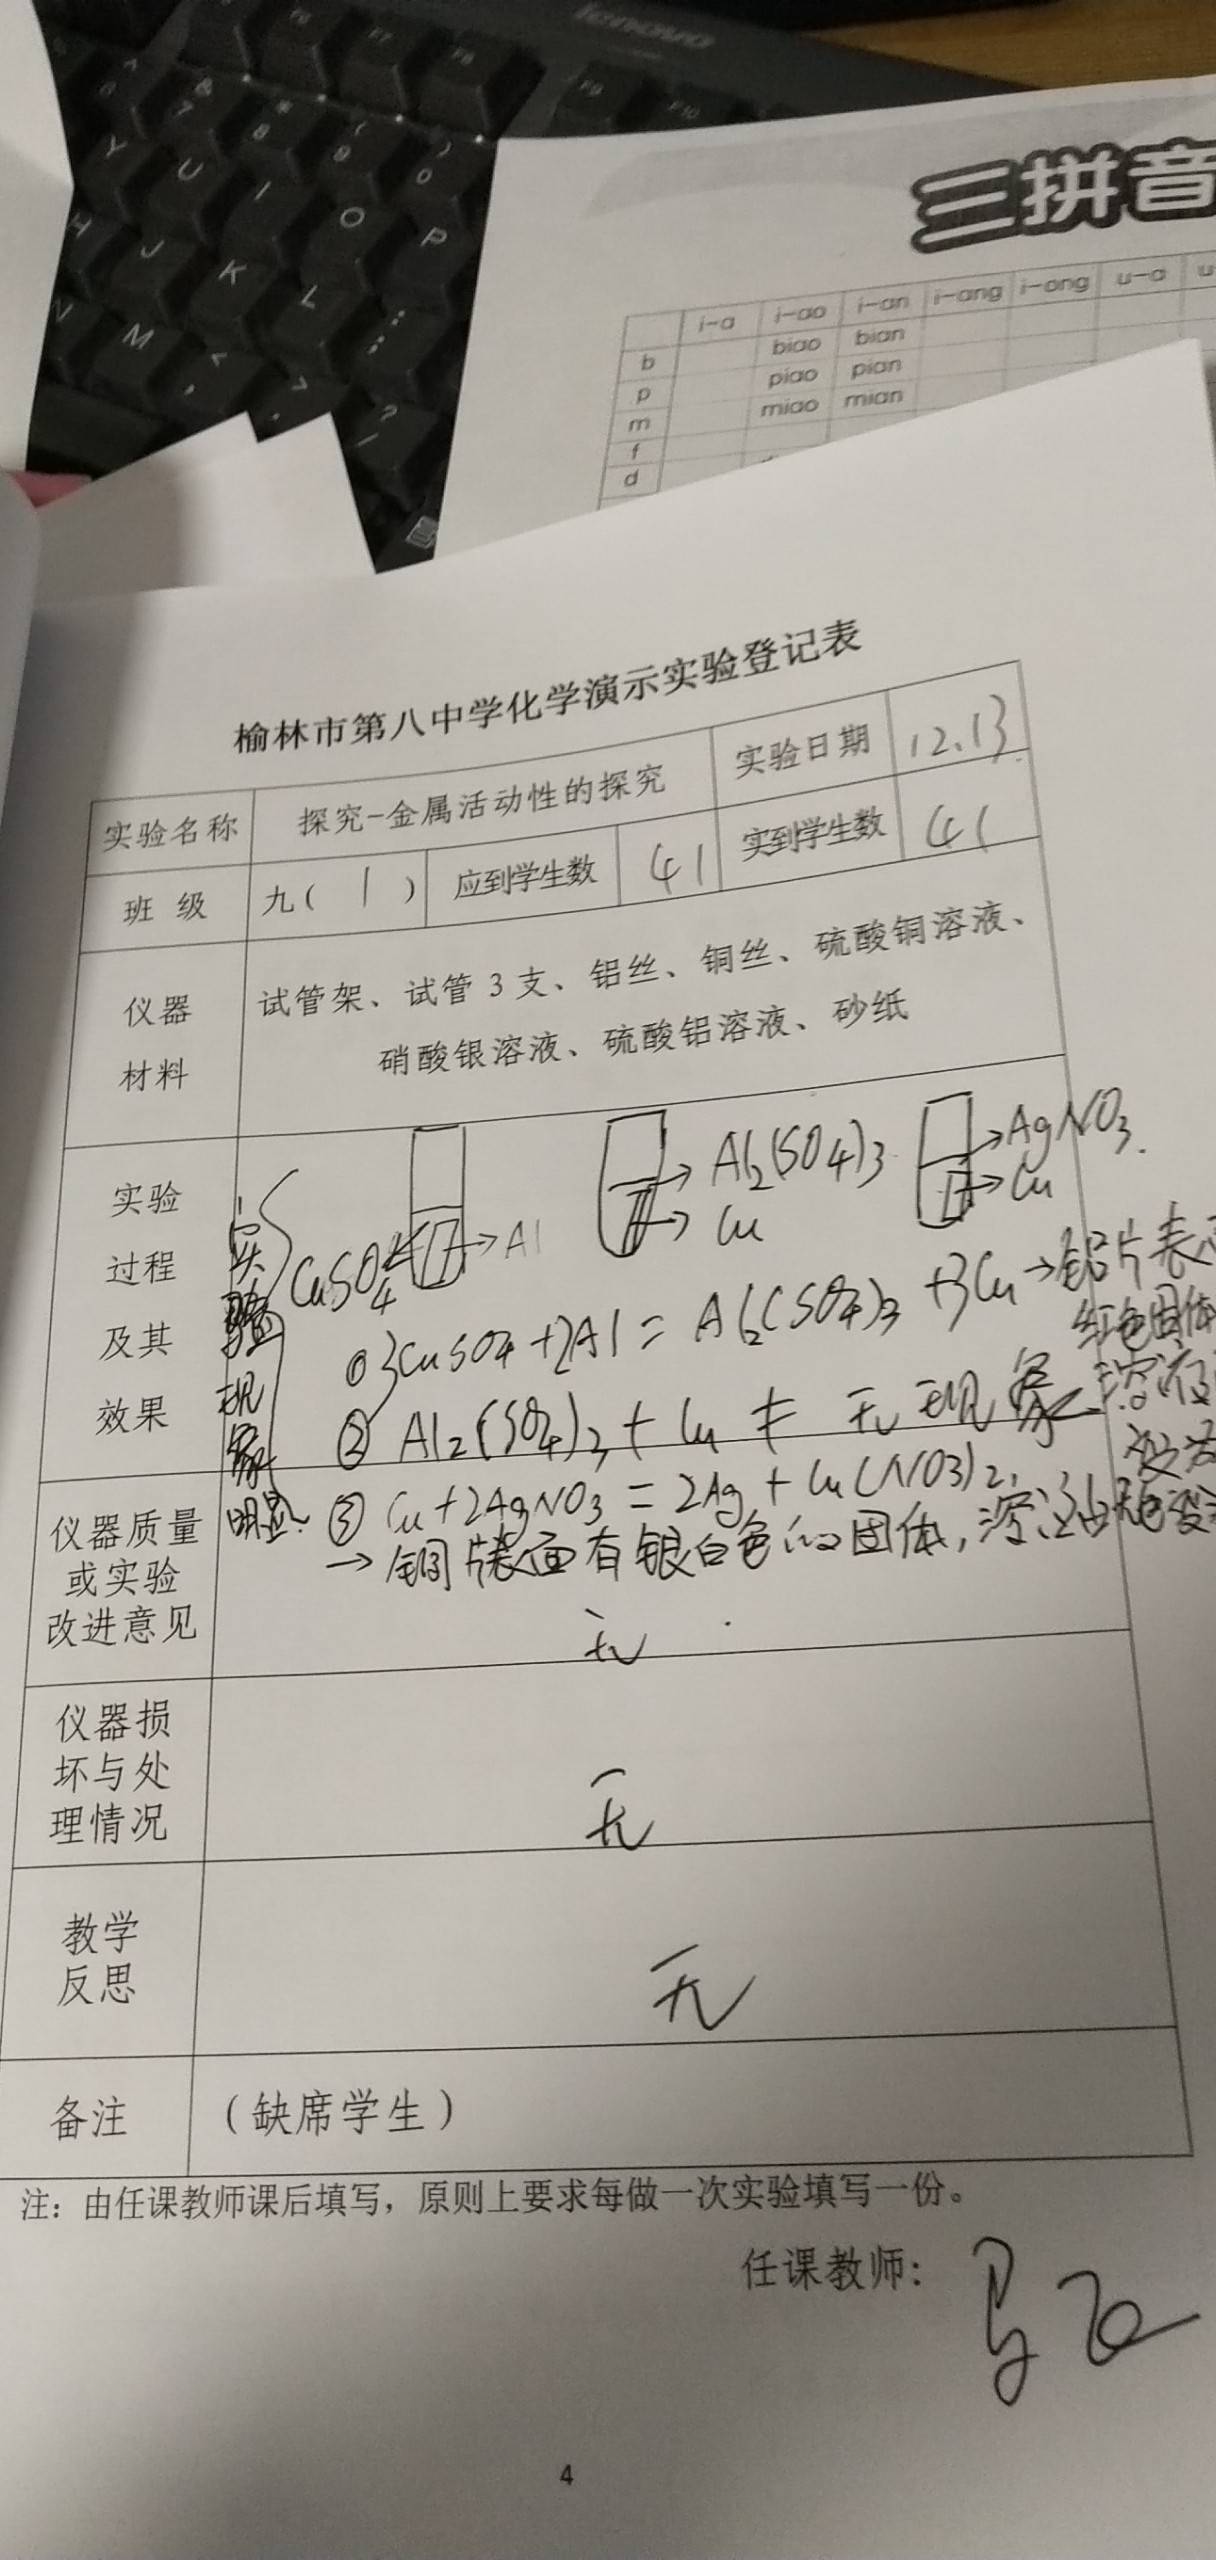 lenovo
F7 F8 F9 F10
& 7 * 8 ( 9 ) 0
Y U I O P
H J K L : ;
N M < , ? /
三拼音
i-a i-ao i-an i-ang i-ong u-a
b biao bian
p piao pian
m miao mian
f
d
榆林市第八中学化学演示实验登记表
实验名称 探究-金属活动性的探究 实验日期 12.13
班 级 九( 1 ) 应到学生数 41 实到学生数 41
仪器
材料
试管架、试管 3 支、铝丝、铜丝、硫酸铜溶液、
硝酸银溶液、硫酸铝溶液、砂纸
实验
过程
及其
效果
实验现象明显.
CuSO4 →Al
→Al2(SO4)3
→Cu
→AgNO3.
→Cu
①3CuSO4+2Al=Al2(SO4)3+3Cu→铝片表
红色固体
溶液
②Al2(SO4)3+Cu≠ 无现象
③Cu+2AgNO3=2Ag+Cu(NO3)2.
→铜片表面有银白色的固体,溶液由无色变
仪器质量
或实验
改进意见
无
仪器损
坏与处
理情况
无
教学
反思
无
备注 (缺席学生)
注:由任课教师课后填写,原则上要求每做一次实验填写一份。
任课教师:
4